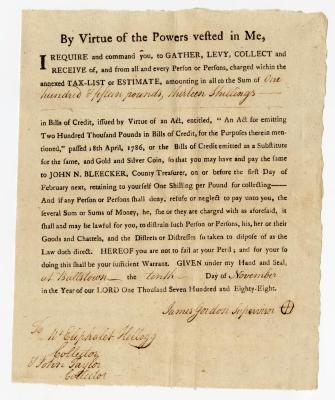 By Virtue of the Powers vested in Me,
I REQUIRE and command you, to GATHER, LEVY, COLLECT and
RECEIVE of, and from all and every Person or Persons, charged within the
annexed TAX-LIST or ESTIMATE, amounting in all to the Sum of One
hundred & fifteen pounds, thirteen Shillings
in Bills of Credit, issued by Virtue of an Act, entitled, "An Act for emitting
Two Hundred Thousand Pounds in Bills of Credit, for the Purposes therein men-
tioned," passed 18th April, 1786, or the Bills of Credit emitted as a Substitute
for the same, and Gold and Silver Coin, so that you may have and pay the same
to JOHN N. BLEECKER, County Treasurer, on or before the first Day of
February next, retaining to yourself One Shilling per Pound for collecting—
And if any Person or Persons shall deny, refuse or neglect to pay unto you, the
several Sum or Sums of Money, he, she or they are charged with as aforesaid, it
shall and may be lawful for you, to distrain such Person or Persons, his, her or their
Goods and Chattels, and the Distress or Distresses so taken to dispose of as the
Law doth direct. HEREOF you are not to fail at your Peril; and for your so
doing this shall be your sufficient Warrant. GIVEN under my Hand and Seal,
at Ballstown the tenth Day of November
in the Year of our LORD One Thousand Seven Hundred and Eighty-Eight.
James Gordon Supervisor
To Mr Eliphalet Kellogg
Collector
& John Taylor
Collector